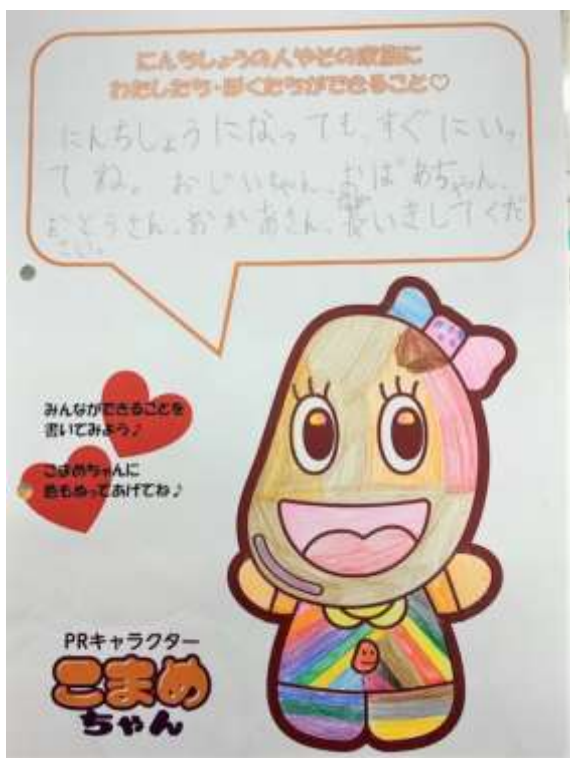 にんちしょうの人やその家族に
わたしたち・ぼくたちができること♡
にんちしょうになっても、すぐにいっ
てね。おじいちゃん、おばあちゃん、
おとうさん、おかあさん、長いきしてくだ
さい。
みんなができることを
書いてみよう♪
こまめちゃんに
色もぬってあげてね♪
PRキャラクター
こまめ
ちゃん